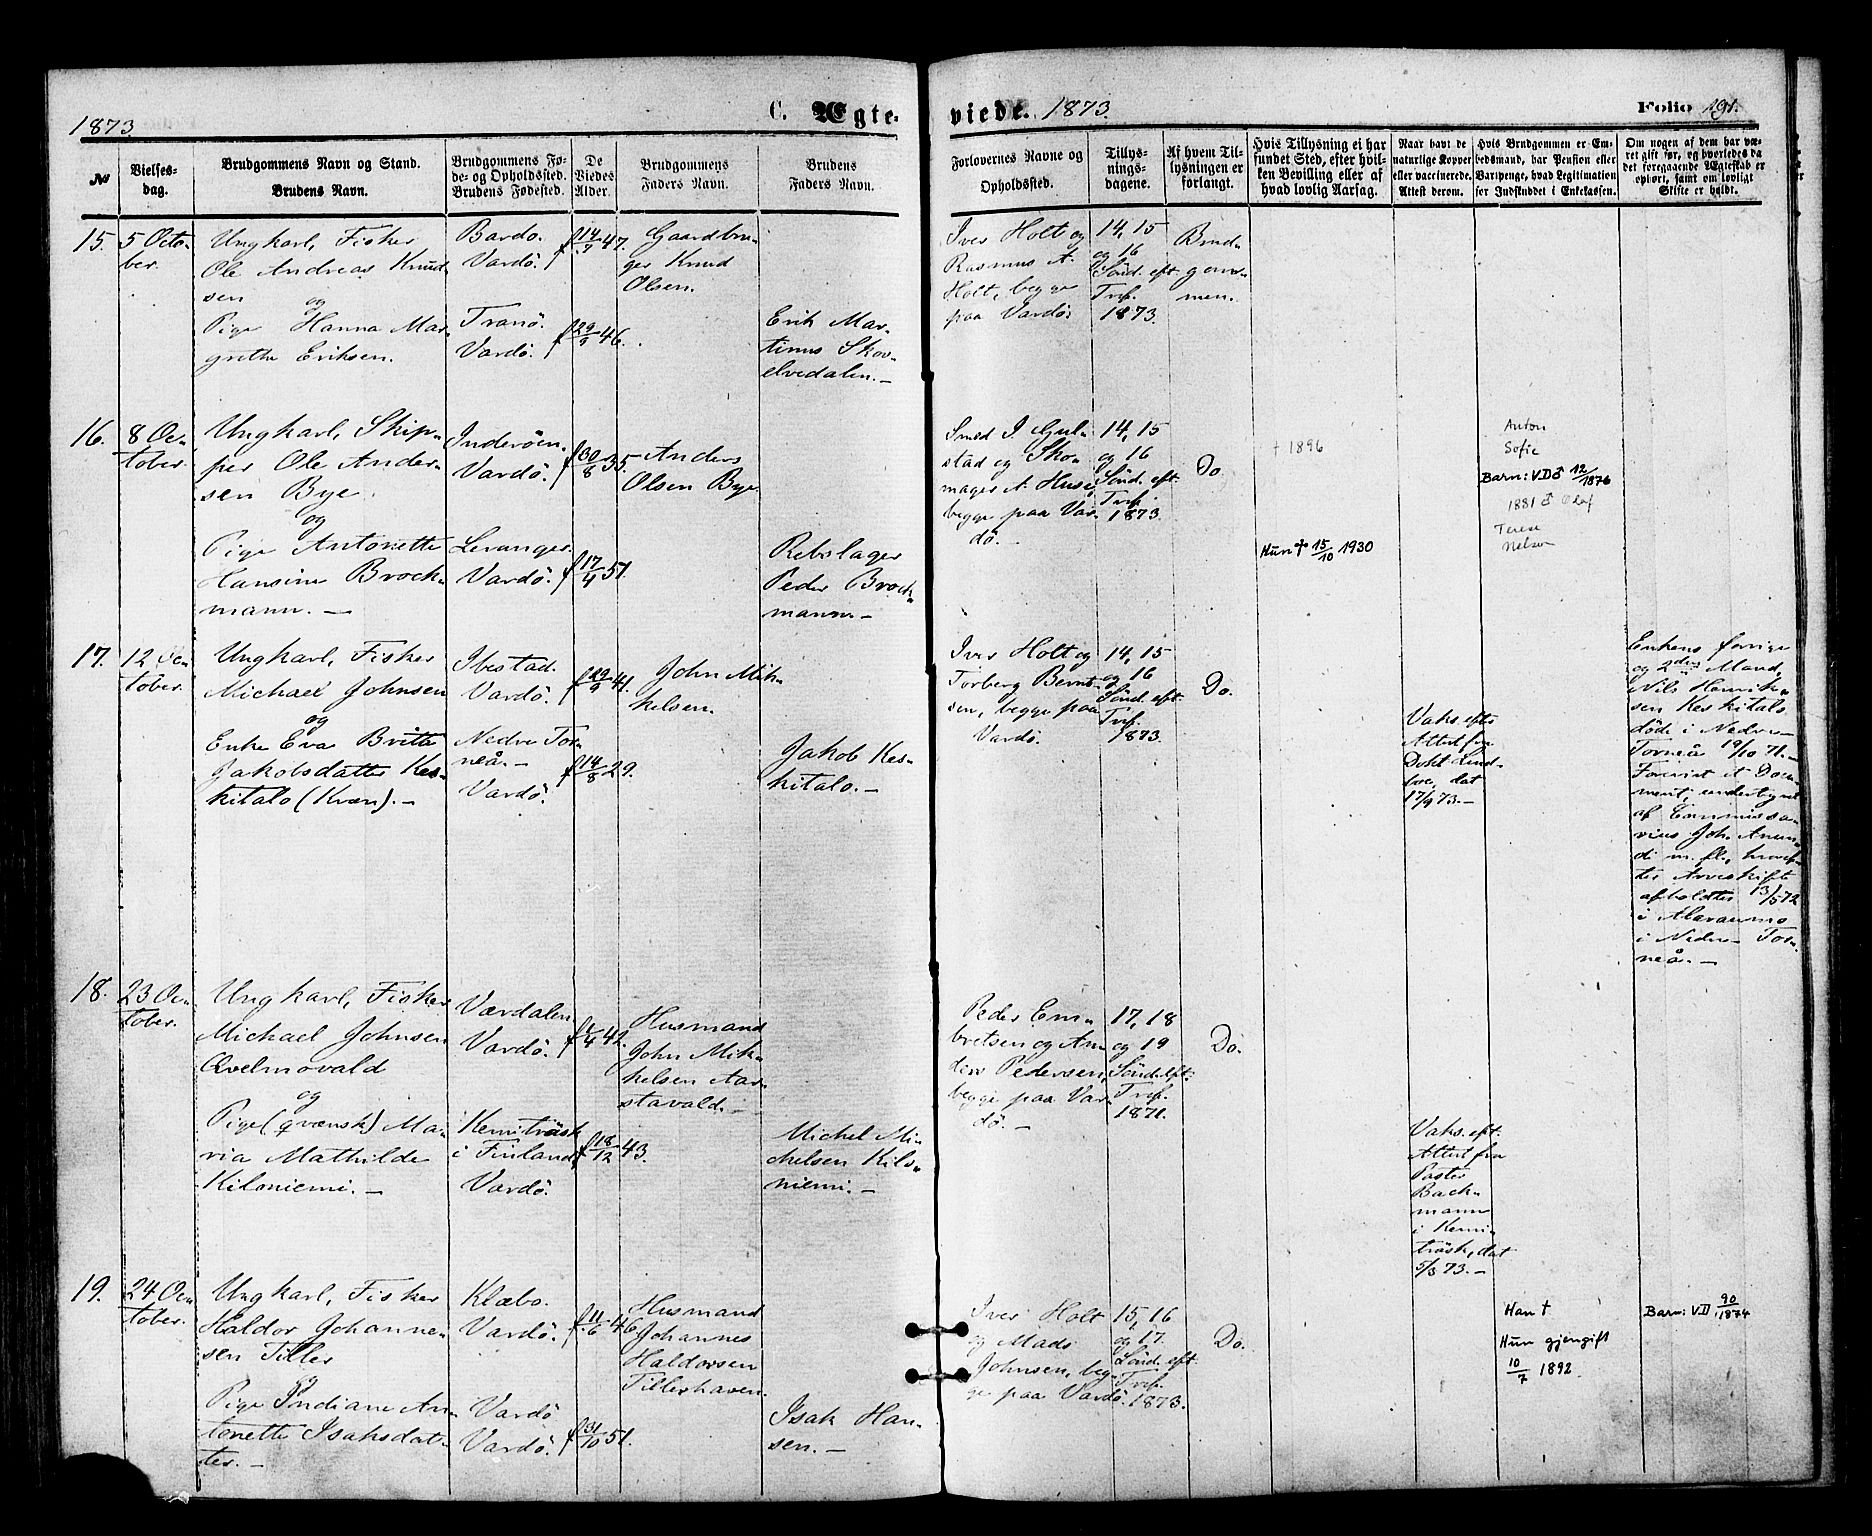 1873
C. Ægte-
viede. 1873.
Folio 191.
No
Vielses-
dag.
Brudgommens Navn og Stand.
Brudens Navn.
Brudgommens Fø-
de- og Opholdssted.
Brudens Fødested.
De
Viedes
Alder.
Brudgommens
Faders Navn.
Brudens
Faders Navn.
Forlovernes Navne og
Opholdssted.
Tillys-
nings-
dagene.
Af hvem Til-
lysningen er
forlangt.
Hvis Tillysning ei har
fundet Sted, efter hvil-
ken Bevilling eller af
hvad lovlig Aarsag.
Naar havt de
naturlige Kopper
eller vaccinerede.
Attest derom.
Hvis Brudgommen er Em-
bedsmand, har Pension eller
Vartpenge, hvad Legitimation
for Indskuddet i Enkekassen.
Om nogen af dem har væ-
ret gift før, og hvorledes da
det foregaaende Ægteskab er
ophørt, samt om lovligt
Skifte er holdt.
15.
5 Octo-
ber.
Ungkarl, Fisker
Ole Andreas Knud-
sen
og
Pige Hanna Mar-
grethe Eriksen.
Bardo.
Vardö.
Tranö.
Vardö.
f 14/7 47.
f 29/9 46.
Gaardbru-
ger Knud
Olsen.
Erik Mar-
tinus Skov-
elvedalen.-
Iver Holt og
Rasmus A.
Holt, begge
paa Vardö.
14, 15
og 16
Sönd. eft.
Tref.
1873.
Brud-
gom-
men.
16.
8 Oc-
tober.
Ungkarl, Skip-
per Ole Ander-
sen Bye.
og
Pige Antonette
Hansine Brock-
mann.-
Inderöen.
Vardö.
Levanger.
Vardö.
f 30/8 35.
f 17/4 51.
Anders
Olsen Bye.
Rebslager
Peder Brock-
mann-
Smed I. Gul-
stad og Sko-
mager A. Huse,
begge paa Var-
dö.-
14, 15
og 16
Sönd. eft.
Tref.
1873.
Do.
+ 1896
Hun + 15/10 1930
Anton
Sofie
Barn: VD♂ 12/1876
1881 ♂ Olaf
Terese
Nelson
17.
12 Oc-
tober.
Ungkarl, Fisker
Michael Johnsen
og
Enke Eva Britta
Jakobsdatter Kes-
kitalo (Kvæn).-
Ibestad.
Vardö.
Nedre Tor-
neå.-
Vardö.
f 29/9 41.
f 14/8 29.
John Mik-
kelsen.
Jakob Kes-
kitalo.-
Iver Holt og
Torberg Bernt-
sen, begge paa
Vardö.
14, 15
og 16
Sönd. eft.
Tref.
1873.
Do.
Vaks. efter
Attest fra
Dokt.
dat
17/9 73.-
Enkens forrige
og 2den Mand,
Nils Henrik-
sen Keskitalo
döde i Nedre-
Torneå 19/10 71.-
Forevist et Docu-
ment, undertegnet
af Commissa-
rius Joh.
m. fl., hvoref-
ter Arveskifte
afholdtes 13/5 72
i
i Nedre Tor-
neå.-
18.
23 Oc-
tober.
Ungkarl, Fisker
Michael Johnsen
Qvelmovald
og
Pige (qvænsk) Ma-
ria Mathilde
Kiloniemi.-
Værdalen
Vardö.
Kemiträsk
i Finland
Vardö.
f 1/4 42.
f 18/12 43.
Husmand
John Mik-
kelsen Aar-
stavald.-
Michel Mi-
chelsen Kilo-
niemi.-
Peder Em-
bretsen og An-
ders Pedersen,
begge paa Var-
dö.-
17, 18
og 19
Sönd. eft.
Tref.
1871.
Do.
Vaks. eft.
Attest fra
Pastor
Back-
mann
i Kemi-
träsk, dat
5/3 73.-
19.
24 Oc-
tober.
Ungkarl, Fisker
Haldor Johanne-
sen Tiller
og
Pige Indiane An-
tonette Isaksdat-
ter.-
Klæbo.
Vardö.
Vardö
Vardö.
f 11/6 46.
f 31/10 51.
Husmand
Johannes
Haldorsen
Tillerhaven.
Isak Han-
sen.-
Iver Holt
og Mads
Johnsen, beg-
ge paa Vardö.
15, 16
og 17.
Sönd. eft.
Tref.
1873.
Do.
Han +
Hun gjengift
10/7 1892
Barn: VD 90/1874